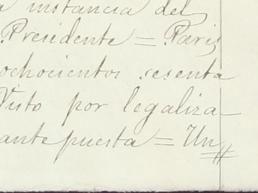 a instancia del
Presidente = Paris
ochocientos sesenta
Visto por legaliza-
antepuesta = Un